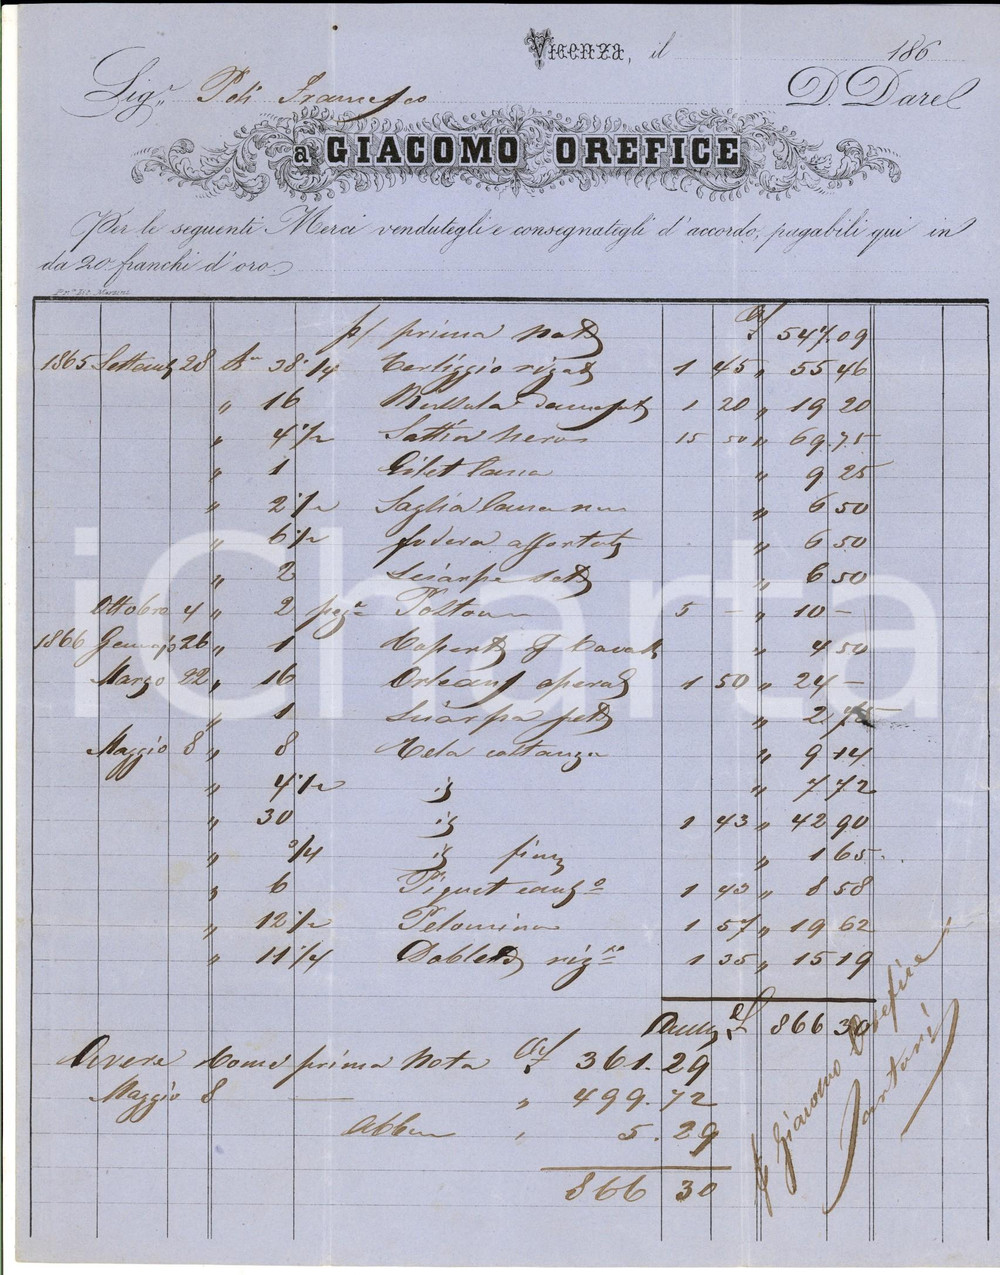 Vicenza, il 186
Sig.r Poli Francesco D. Dare
a GIACOMO OREFICE
Per le seguenti Merci vendutegli e consegnategli d'accordo, pagabili qui in
da 20 franchi d'oro
p/ prima nota 547.09
1865 28 38 1/4 1 45 " 55 46
" 16 1 20 " 19 20
" 4 1/2 Sattin nero 15 50 " 69.75
" 1 Gilet lana " 9 25
" 2 1/2 lana " 6 50
" 6 1/2 fodera " 6 50
" 2 Sciarpe " 6 50
Ottobre 4 " 2 5 - " 10 -
1866 26 " 1 " 4 50
Marzo 22 " 16 Orleans 1 50 " 24 -
" 1 Sciarpa " 2 75
Maggio 8 " 8 Tela costanza " 9 14
" 4 1/2 " 7 72
" 30 1 43 " 42 90
" 3/4 " 1 65
" 6 1 43 " 8 58
" 12 1/2 1 57 " 19 62
" 11 1/4 1 35 " 15 19
866 30
Avere Come prima Nota 361.29
Maggio 8 " 499.72
" 5.29
866 30
Giacomo Orefice
iCharta